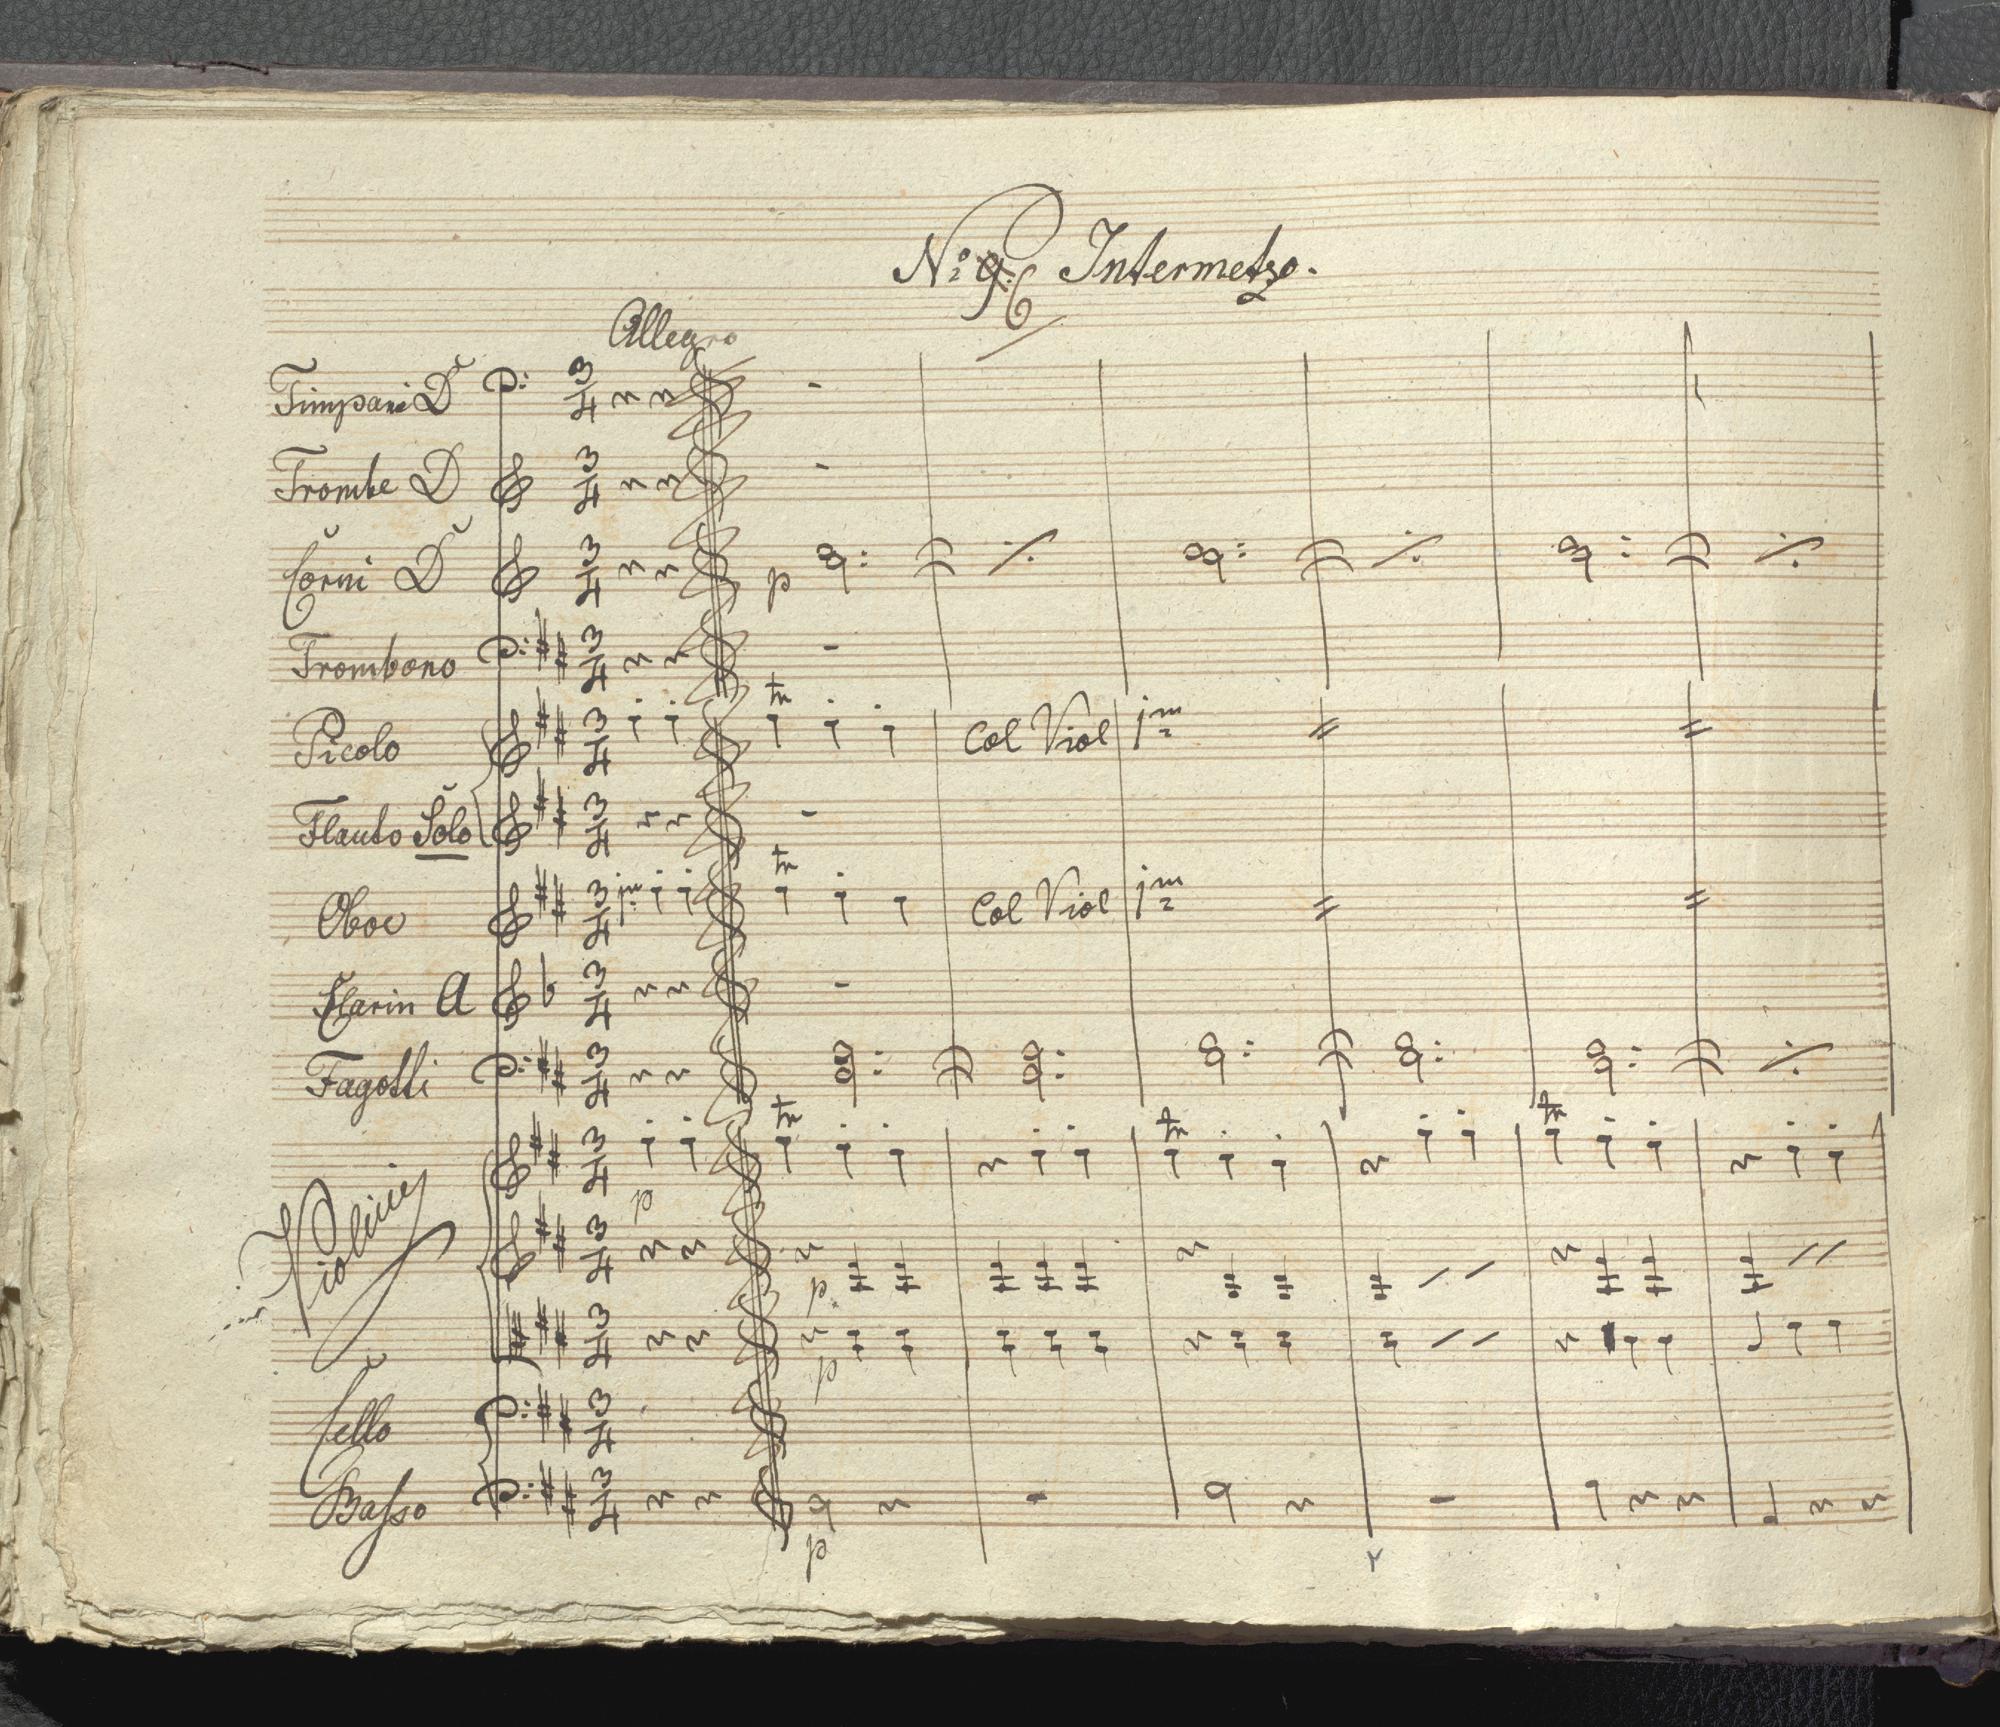 No 6 Intermetzo.
Allegro
Timpani D
Trombe D
p
Corni D
Trombono
tr
Picolo Col Viol 1mo
Flauto Solo
tr
Oboe 1mo Col Viol 1mo
Clarin A
Fagotti
tr tr tr
p
Violini
p
p
Cello
Basso
p